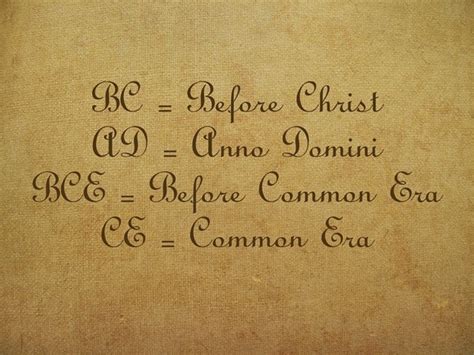 BC = Before Christ
AD = Anno Domini
BCE = Before Common Era
CE = Common Era